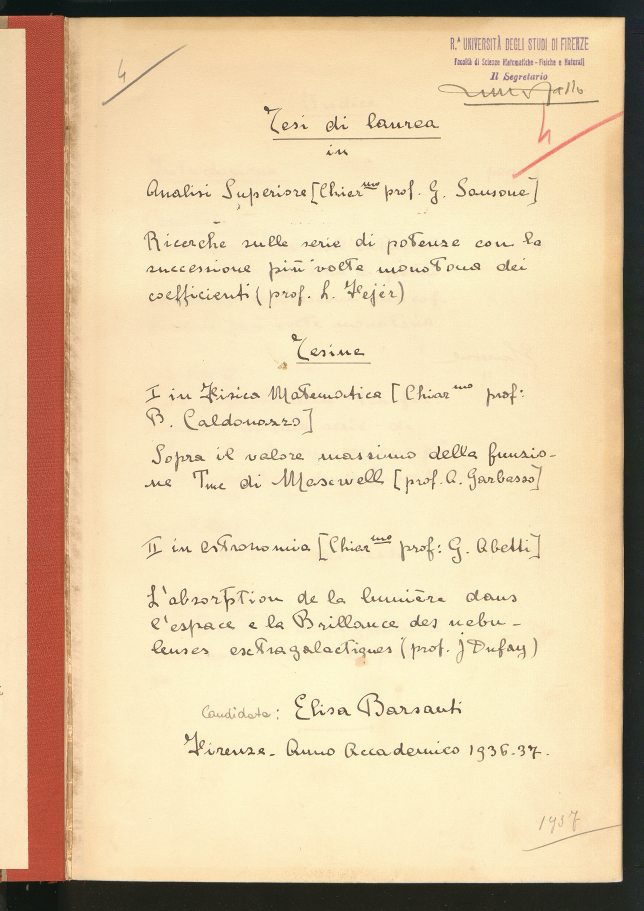 4
R.ª UNIVERSITÀ DEGLI STUDI DI FIRENZE
Facoltà di Scienze Matematiche - Fisiche e Naturali
Il Segretario
4
Tesi di laurea
in
Analisi Superiore [Chiar^mo prof. G. Sansone]
Ricerche sulle serie di potenze con la
successione più volte monotona dei
coefficienti (prof. L. Fejér)
Tesine
I in Fisica Matematica [Chiar^mo prof:
B. Caldonazzo]
Sopra il valore massimo della funzio-
ne Tmc di Maxwell [prof. A. Garbasso]
II in astronomia [Chiar^mo prof: G. Abetti]
L'absorption de la lumière dans
l'espace e la Brillance des nebu-
leuses extragalactiques (prof. J Dufay)
Candidata: Elisa Barsanti
Firenze - Anno Accademico 1936-37.
1937